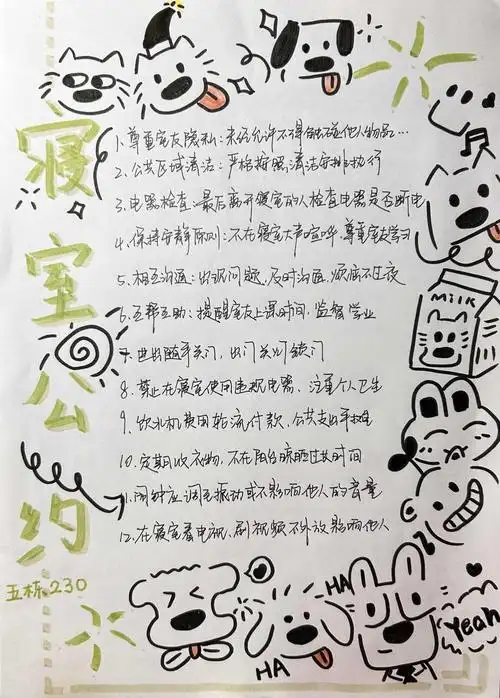 寝室公约
1. 尊重室友隐私:未经允许不得触碰他人物品…
2. 公共区域清洁:严格按照清洁安排执行
3. 电器检查:最后离开寝室的人检查电器是否断电
4. 保持安静原则:不在寝室大声喧哗 尊重室友学习
5. 相互沟通:出现问题,及时沟通,烦恼不过夜
6. 互帮互助:提醒室友上课时间,监督学业
7. 进出随手关门,出门关灯锁门
8. 禁止在寝室使用违规电器、注重个人卫生
9. 饮水机费用轮流付款、公共支出平摊
10. 定期收衣物,不在阳台晾晒过长时间
11. 闹钟应调至振动或不影响他人的音量
12. 在寝室看电视,刷视频不外放影响他人
五栋230
MILK
HA
HA
Yeah